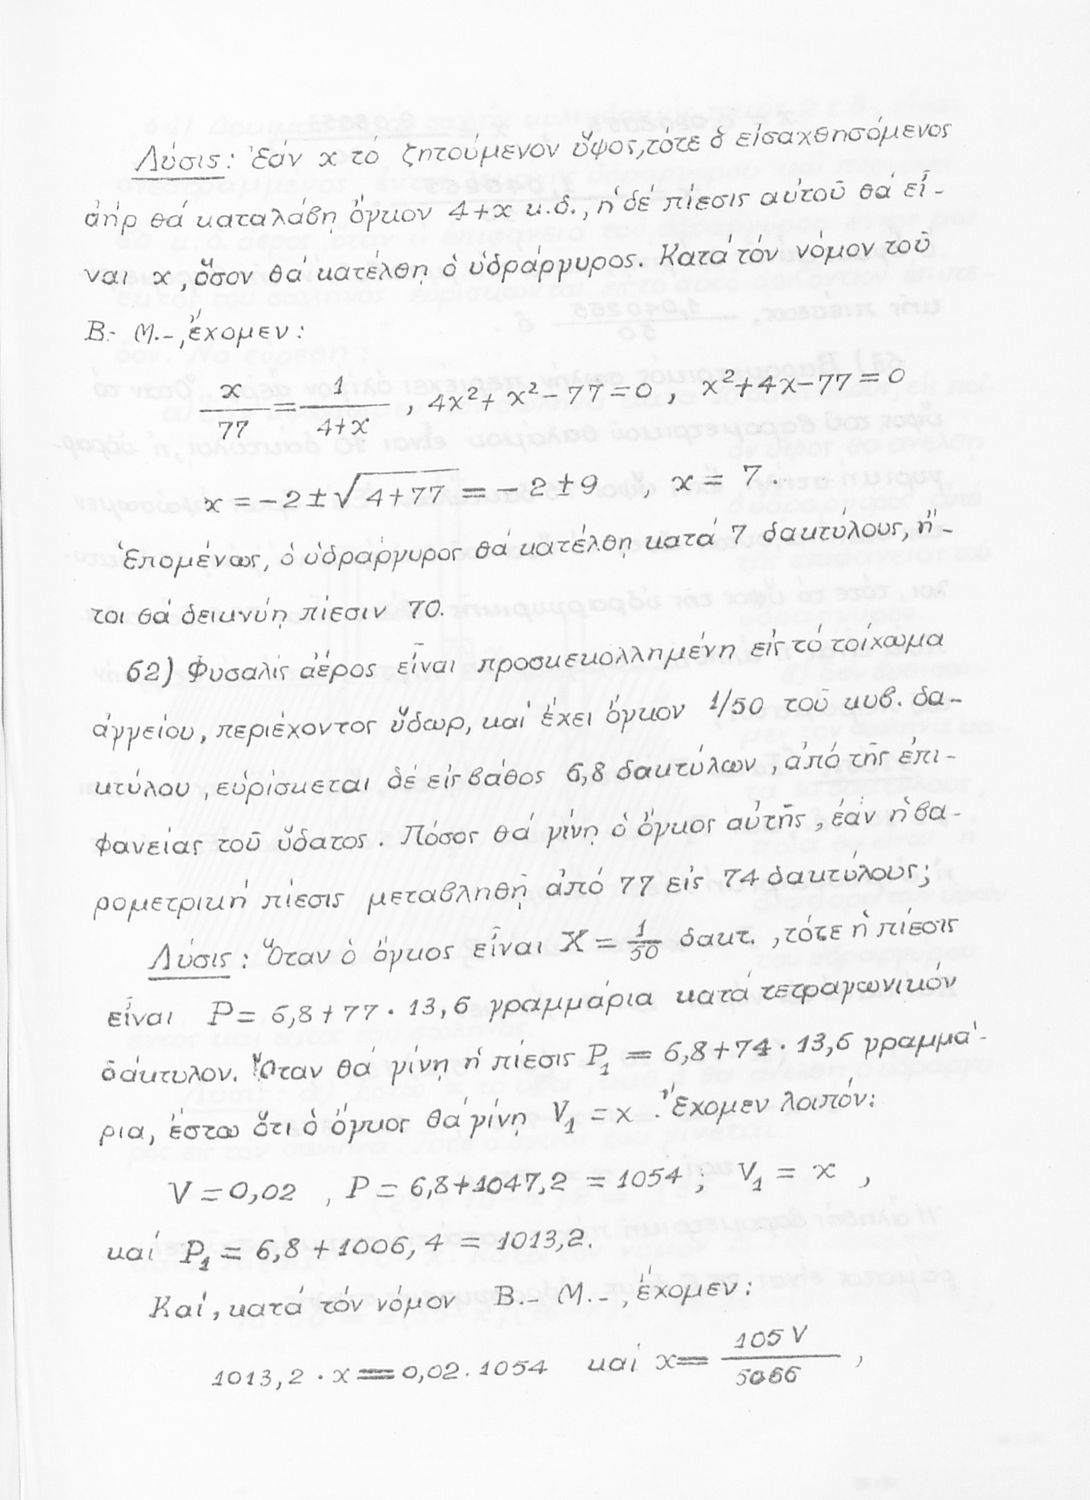 Λύσις: Ἐάν x τό ζητούμενον ὕψος, τότε ὁ εἰσαχθησόμενος
ἀήρ θά καταλάβῃ ὄγκον 4+x κ.δ., ἡ δέ πίεσις αὐτοῦ θά εἶ-
ναι x, ὅσον θά κατέλθῃ ὁ ὑδράργυρος. Κατά τόν νόμον τοῦ
B.- M.-, ἔχομεν:
x/77 = 1/4+x , 4x²+x²-77=0 , x²+4x-77=0
x = -2±√4+77 = -2±9 , x = 7.
Ἑπομένως, ὁ ὑδράργυρος θά κατέλθῃ κατά 7 δακτύλους, ἤ-
τοι θά δεικνύῃ πίεσιν 70.
62) Φυσαλίς ἀέρος εἶναι προσκεκολλημένη εἰς τό τοίχωμα
ἀγγείου, περιέχοντος ὕδωρ, καί ἔχει ὄγκον 1/50 τοῦ κυβ. δα-
κτύλου, εὑρίσκεται δέ εἰς βάθος 6,8 δακτύλων, ἀπό τῆς ἐπι-
φανείας τοῦ ὕδατος. Πόσος θά γίνῃ ὁ ὄγκος αὐτῆς, ἐάν ἡ βα-
ρομετρική πίεσις μεταβληθῇ ἀπό 77 εἰς 74 δακτύλους;
Λύσις: Ὅταν ὁ ὄγκος εἶναι X = 1/50 δακτ., τότε ἡ πίεσις
εἶναι P = 6,8+77·13,6 γραμμάρια κατά τετραγωνικόν
δάκτυλον. Ὅταν θά γίνῃ ἡ πίεσις P₁ = 6,8+74·13,6 γραμμά-
ρια, ἔστω ὅτι ὁ ὄγκος θά γίνῃ V₁ = x. Ἔχομεν λοιπόν:
V = 0,02 , P = 6,8+1047,2 = 1054 ; V₁ = x ,
καί P₁ = 6,8 + 1006,4 = 1013,2.
Καί, κατά τόν νόμον B.- M.-, ἔχομεν:
1013,2 · x = 0,02 . 1054 καί x = 105 V/5066 ,